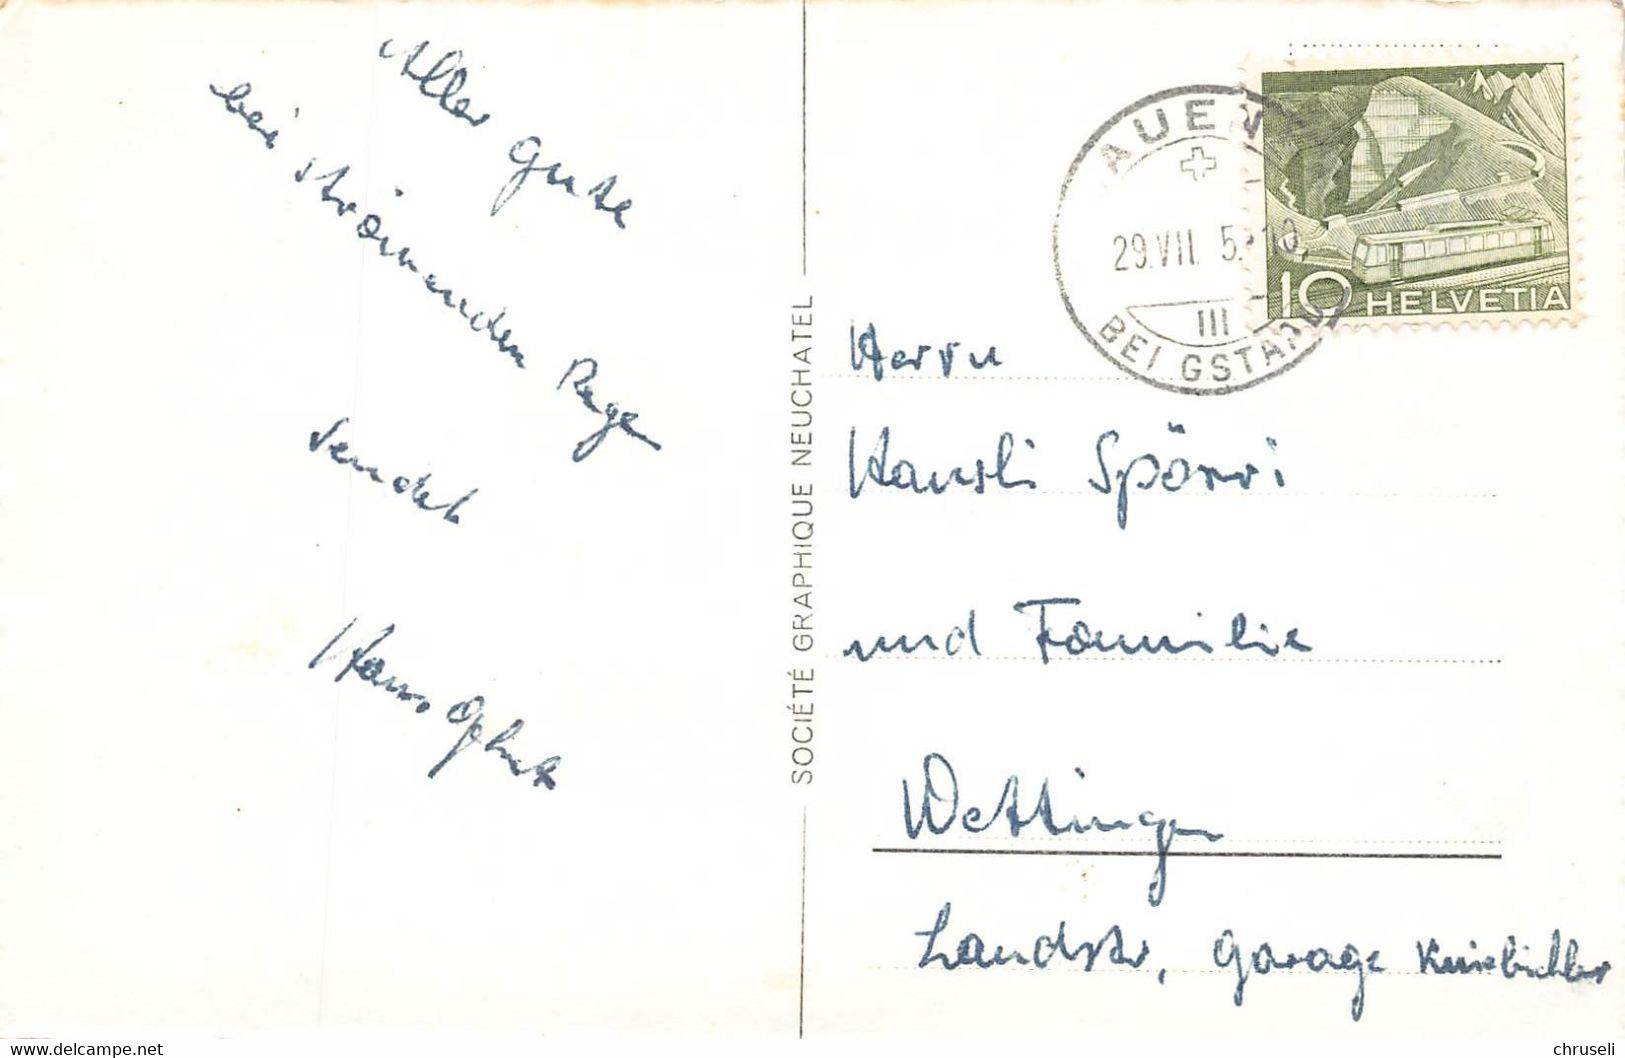 Aller Gute
bei strömenden Rege
sendet
Hans
SOCIÉTÉ GRAPHIQUE NEUCHATEL
AUEN
29.VII. 5 10
III
BEI GSTAAD
10 HELVETIA
Herrn
Hansli Spörri
und Familie
Wettingen
Landstr, Garage
www.delcampe.net
chruseli